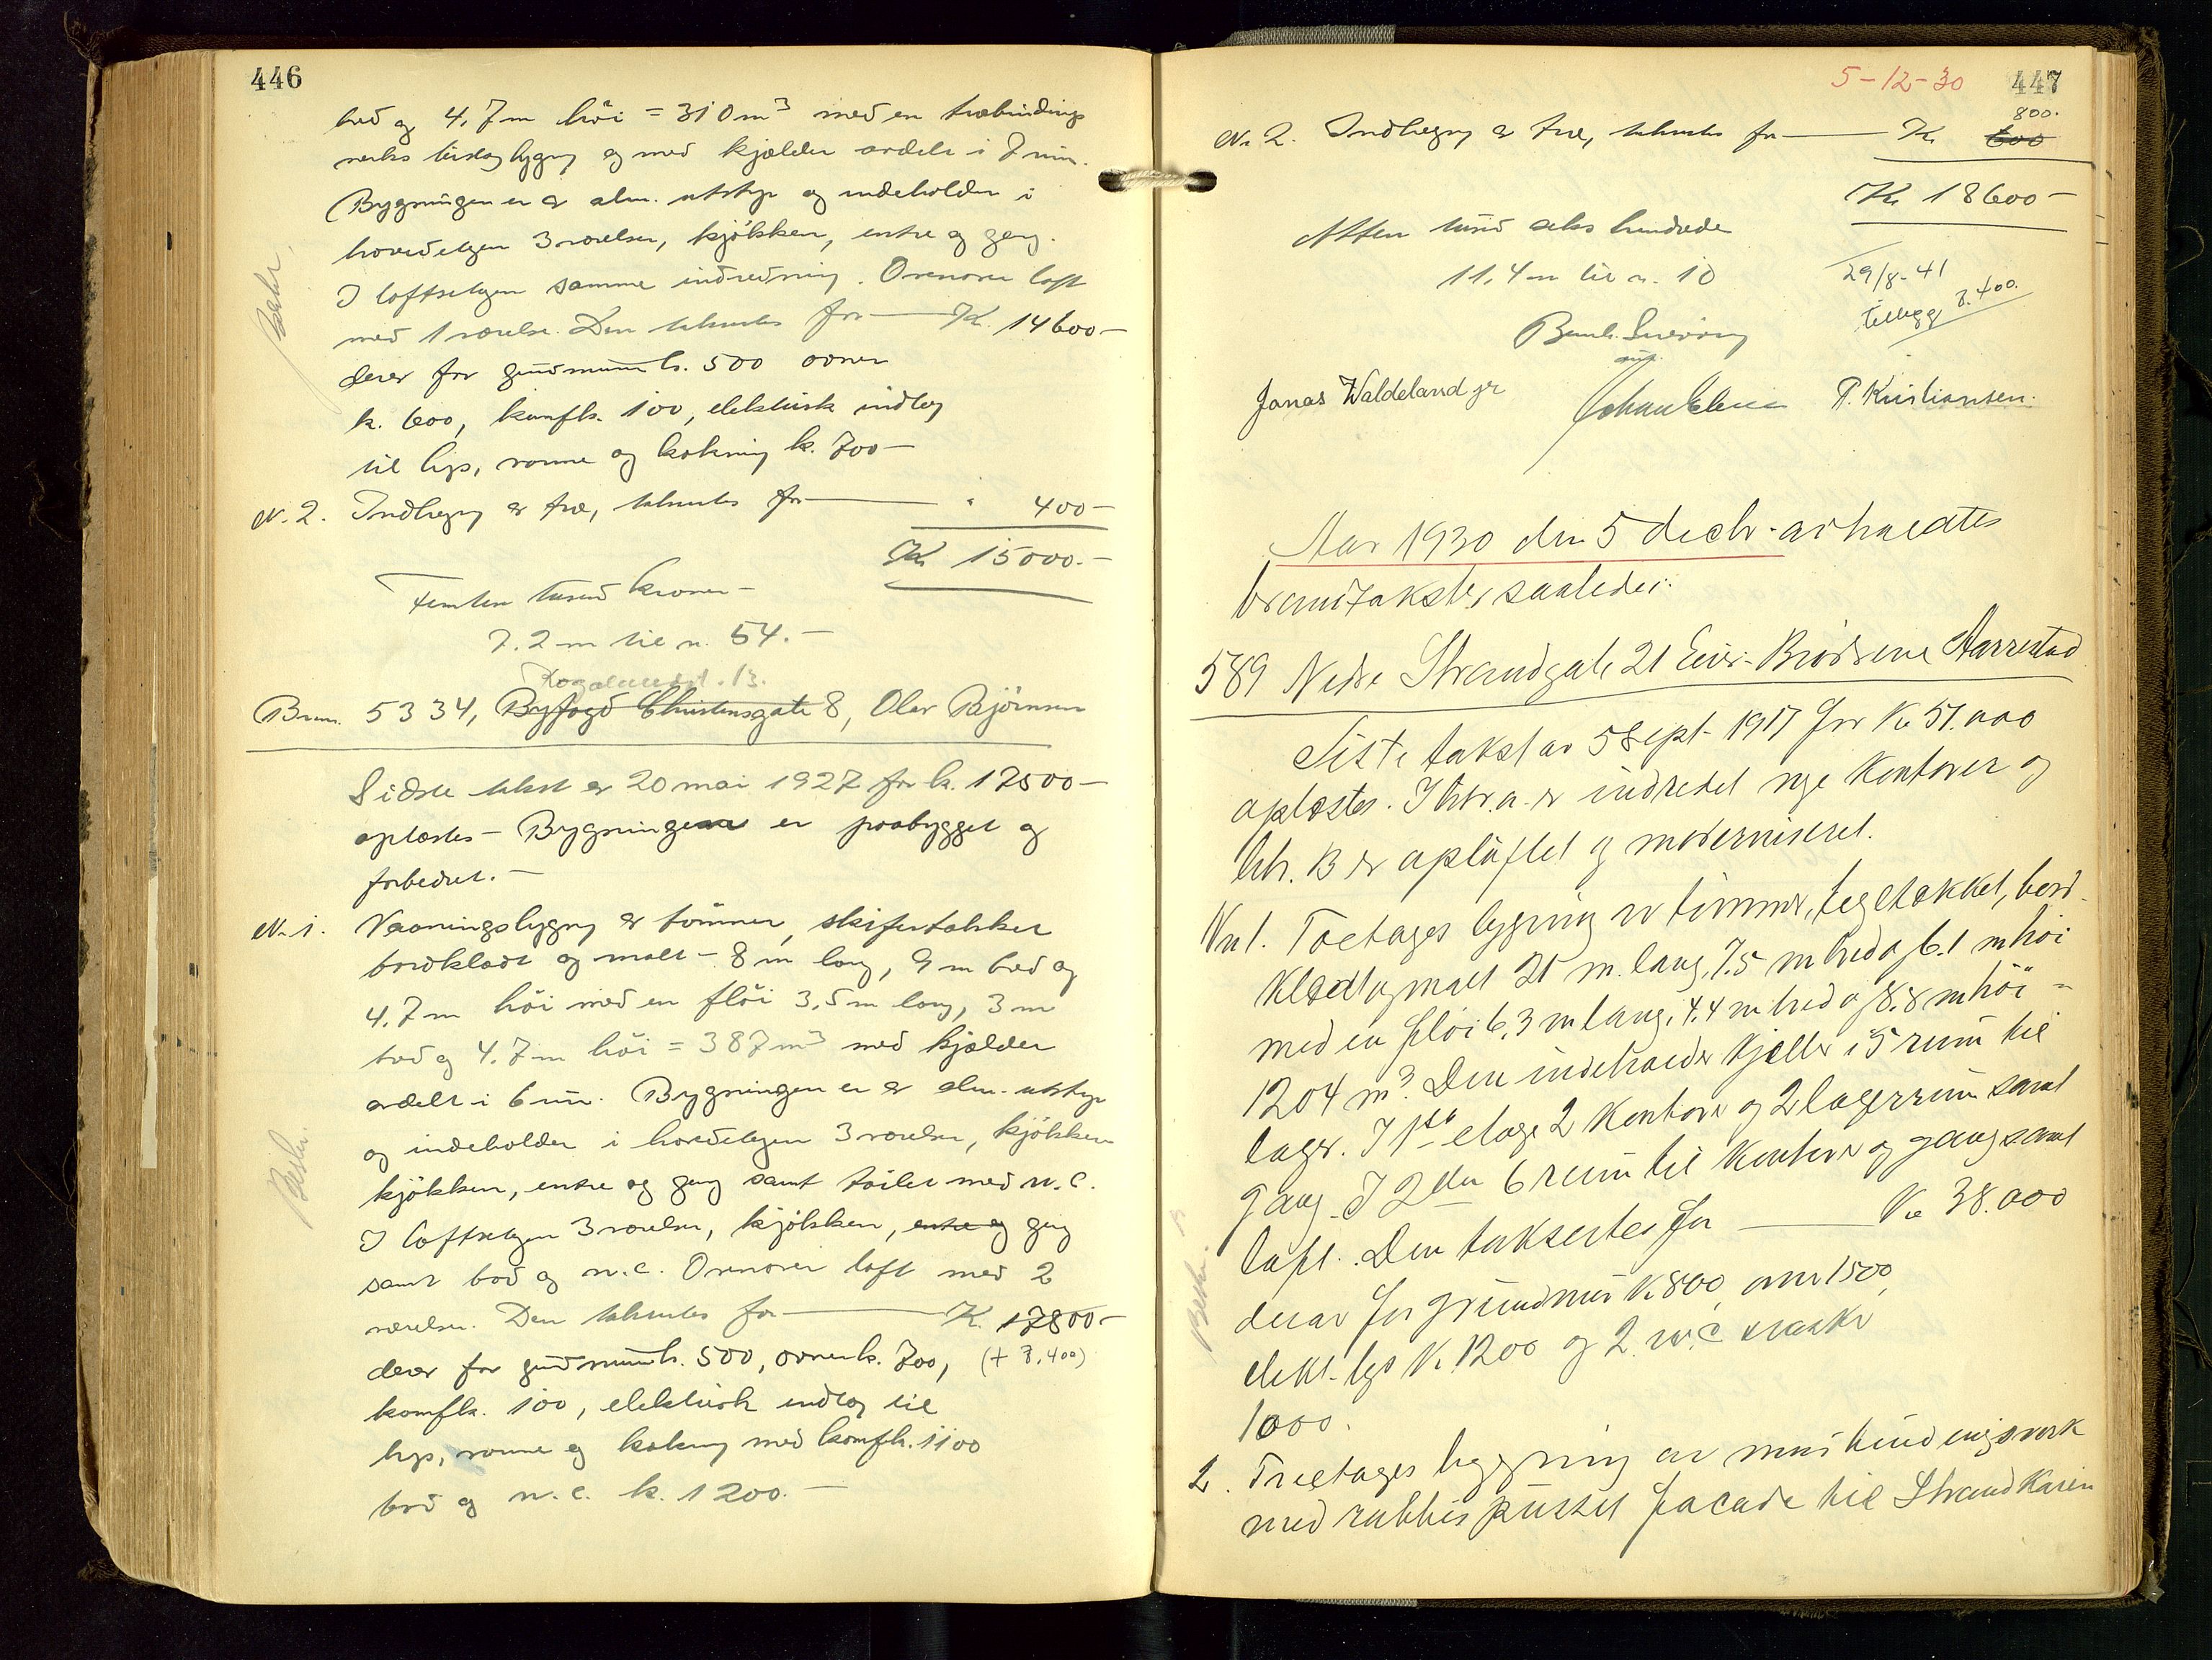 446
bred og 4.7m höi = 310m³ med en træbindings
verks tilbygg og med kjælder avdelt i 7 rum.
Bygningen er av alm. utstyr og indeholder i
hovedetagen 3 værelser, kjökken, entre og gang.
I loftsetagen samme indredning. Ovenover loft
med 1 værelse. Den takseres for — Kr. 14600-
derav for grundmur kr. 500 ovner
kr. 600, komf kr. 100, elektrisk indlag
til lys, varme og kokning kr. 700-
Nr. 2. Indhegn av træ, takseres for — " 400-
Kr 15000.-
Femten tusend kroner -
7.2 m til nr. 54.-
Rogalandsgt. 13.
Brnr. 5334, Byfogd Christensgate 8, Olav Björnsen
Sidste takst av 20 mai 1927 for kr. 17500-
oplæstes - Bygningen er paabygget og
forbedret.-
Nr. 1. Vaaningsbygn av tömmer, skifertækket
bordklædt og malt - 8 m lang, 9 m bred og
4.7m höi med en flöi 3,5m lang, 3m
bred og 4.7m höi = 387m³ med kjælder
avdelt i 6 rum. Bygningen er av alm. utstyr
og indeholder i hovedetagen 3 værelser, kjökken
kjökken, entre og gang samt toilet med w.c.
I loftsetagen 3 værelser, kjökken, entre og gang
samt bod og w.c. Ovenover loft med 2
værelser. Den takseres for — Kr. 17800-
derav for grundmur kr. 500, ovner kr. 700, (+ 7.400)
komf kr. 100, elektrisk indlag til
lys, varme og kokning med komf kr. 1100
bad og w.c. kr. 1200.-
Beskr.
5-12-30 447
800.
Nr 2. Indhegn av træ, takseres for — Kr 600
Kr 18600-
Atten tusind seks hundrede
11.4 m til nr. 10
29/8-41
tillegg 7.400.
Jonas Waldeland jr P. Kristiansen.
Aar 1930 den 5 decbr. avholdtes
branntakster saaledes:
589 Nedre Strandgate 21 Eier: Brödrene Aarrestad
Siste takst av 5 Sept 1917 for Kr 51.000
oplæstes. I litr. a. er indredet nye Kontorer og
litr. B er opløftet og moderniseret.
Nr 1. Toetages bygning av tømmer, tegltækket, bord-
klædt og malt 21 m. lang, 7.5 m bred og 6.1 m høi
med en fløi 6,3 m lang, 4,4 m bred og 8.8 m høi =
1204 m³. Den indeholder Kjeller i 5 rum til
lager. I 1ste etage 2 Kontorer og 2 lagerrum samt
gang. I 2den 6 rum til Kontorer og gang samt
loft. Den taksertes for — Kr 38.000
derav for grundmur Kr 800, ovner 1500,
elekt. lys Kr. 1200 og 2 w.c. vaske
1000.
Beskr. B
2. Treetages bygning av murbindingsverk
med rabbitspusset facade til Strandkaien